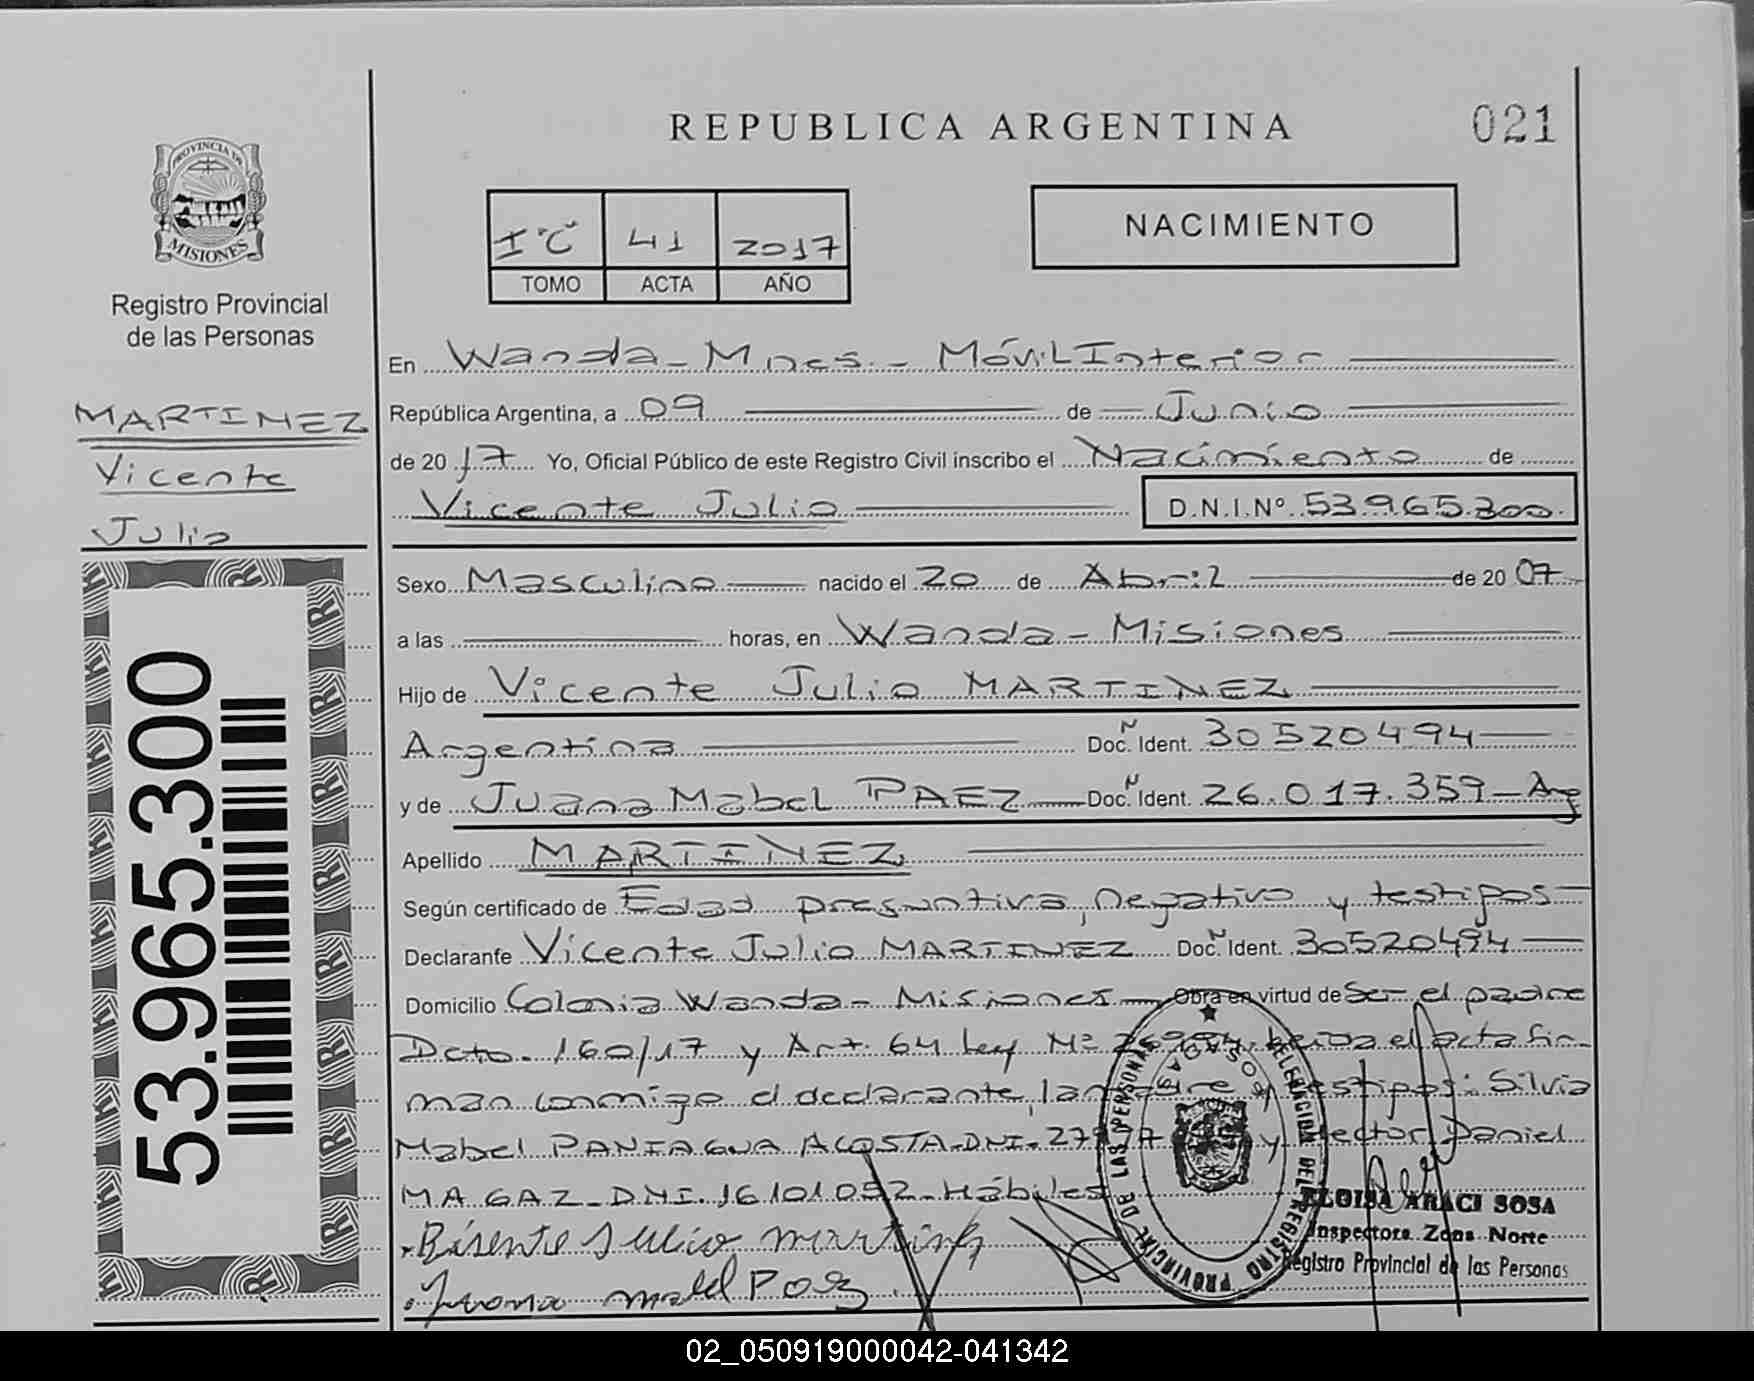 REPUBLICA ARGENTINA
021
PROVINCIA DE
MISIONES
Registro Provincial
de las Personas
MARTINEZ
Vicente
Julio
53.965.300
41 2017
TOMO ACTA AÑO
NACIMIENTO
En Wanda - Mnes. - Móvil Interior
República Argentina, a 09 de Junio
de 2017 Yo, Oficial Público de este Registro Civil inscribo el Nacimiento de
Vicente Julio D.N.I.Nº 53.965.300.
Sexo Masculino nacido el 20 de Abril de 2007
a las horas, en Wanda - Misiones
Hijo de Vicente Julio MARTINEZ
Argentina Doc. Ident. 30520494
y de Juana Mabel PAEZ Doc. Ident. 26.017.359 - Arg
Apellido MARTINEZ
Según certificado de Edad presuntiva, negativo y testigos
Declarante Vicente Julio MARTINEZ Doc. Ident. 30520494
Domicilio Colonia Wanda - Misiones Obra en virtud de Ser el padre
Dcto. 160/17 y Art. 64 Ley Nº el acta fir-
man conmigo el declarante, la testigos: Silvia
Mabel PANIAGUA ACOSTA - DNI. y Hector Daniel
MAGAZ - DNI. 16101052 - Hábiles
Bisente Julio
ELOISA ARACI SOSA
Inspectora Zona Norte
Registro Provincial de las Personas
DELEGACION DEL REGISTRO PROVINCIAL DE LAS PERSONAS
02_050919000042-041342